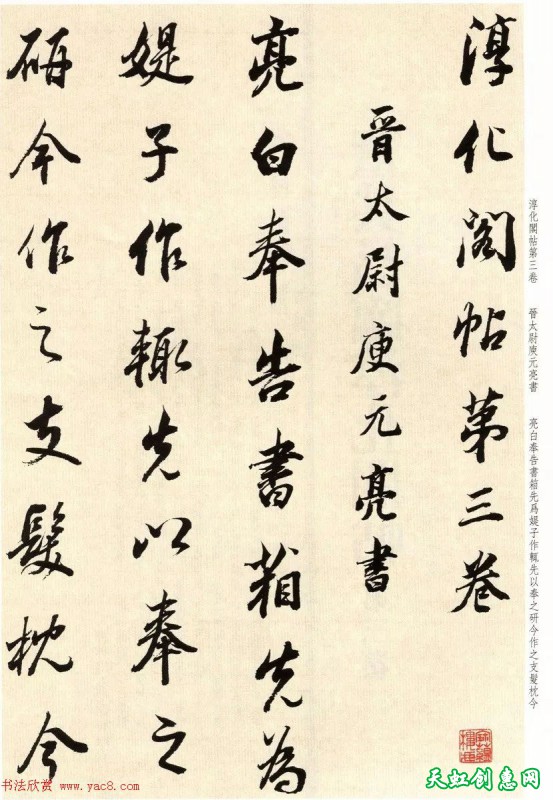 淳化阁帖第三卷
晋太尉庾元亮书
亮白奉告书箱先为
媞子作辄先以奉之
研今作之支髮枕今
淳化閣帖第三卷 晉太尉庾元亮書 亮白奉告書箱先爲媞子作輒先以奉之研今作之支髮枕今
书法欣赏 www.yac8.com
天虹创意网